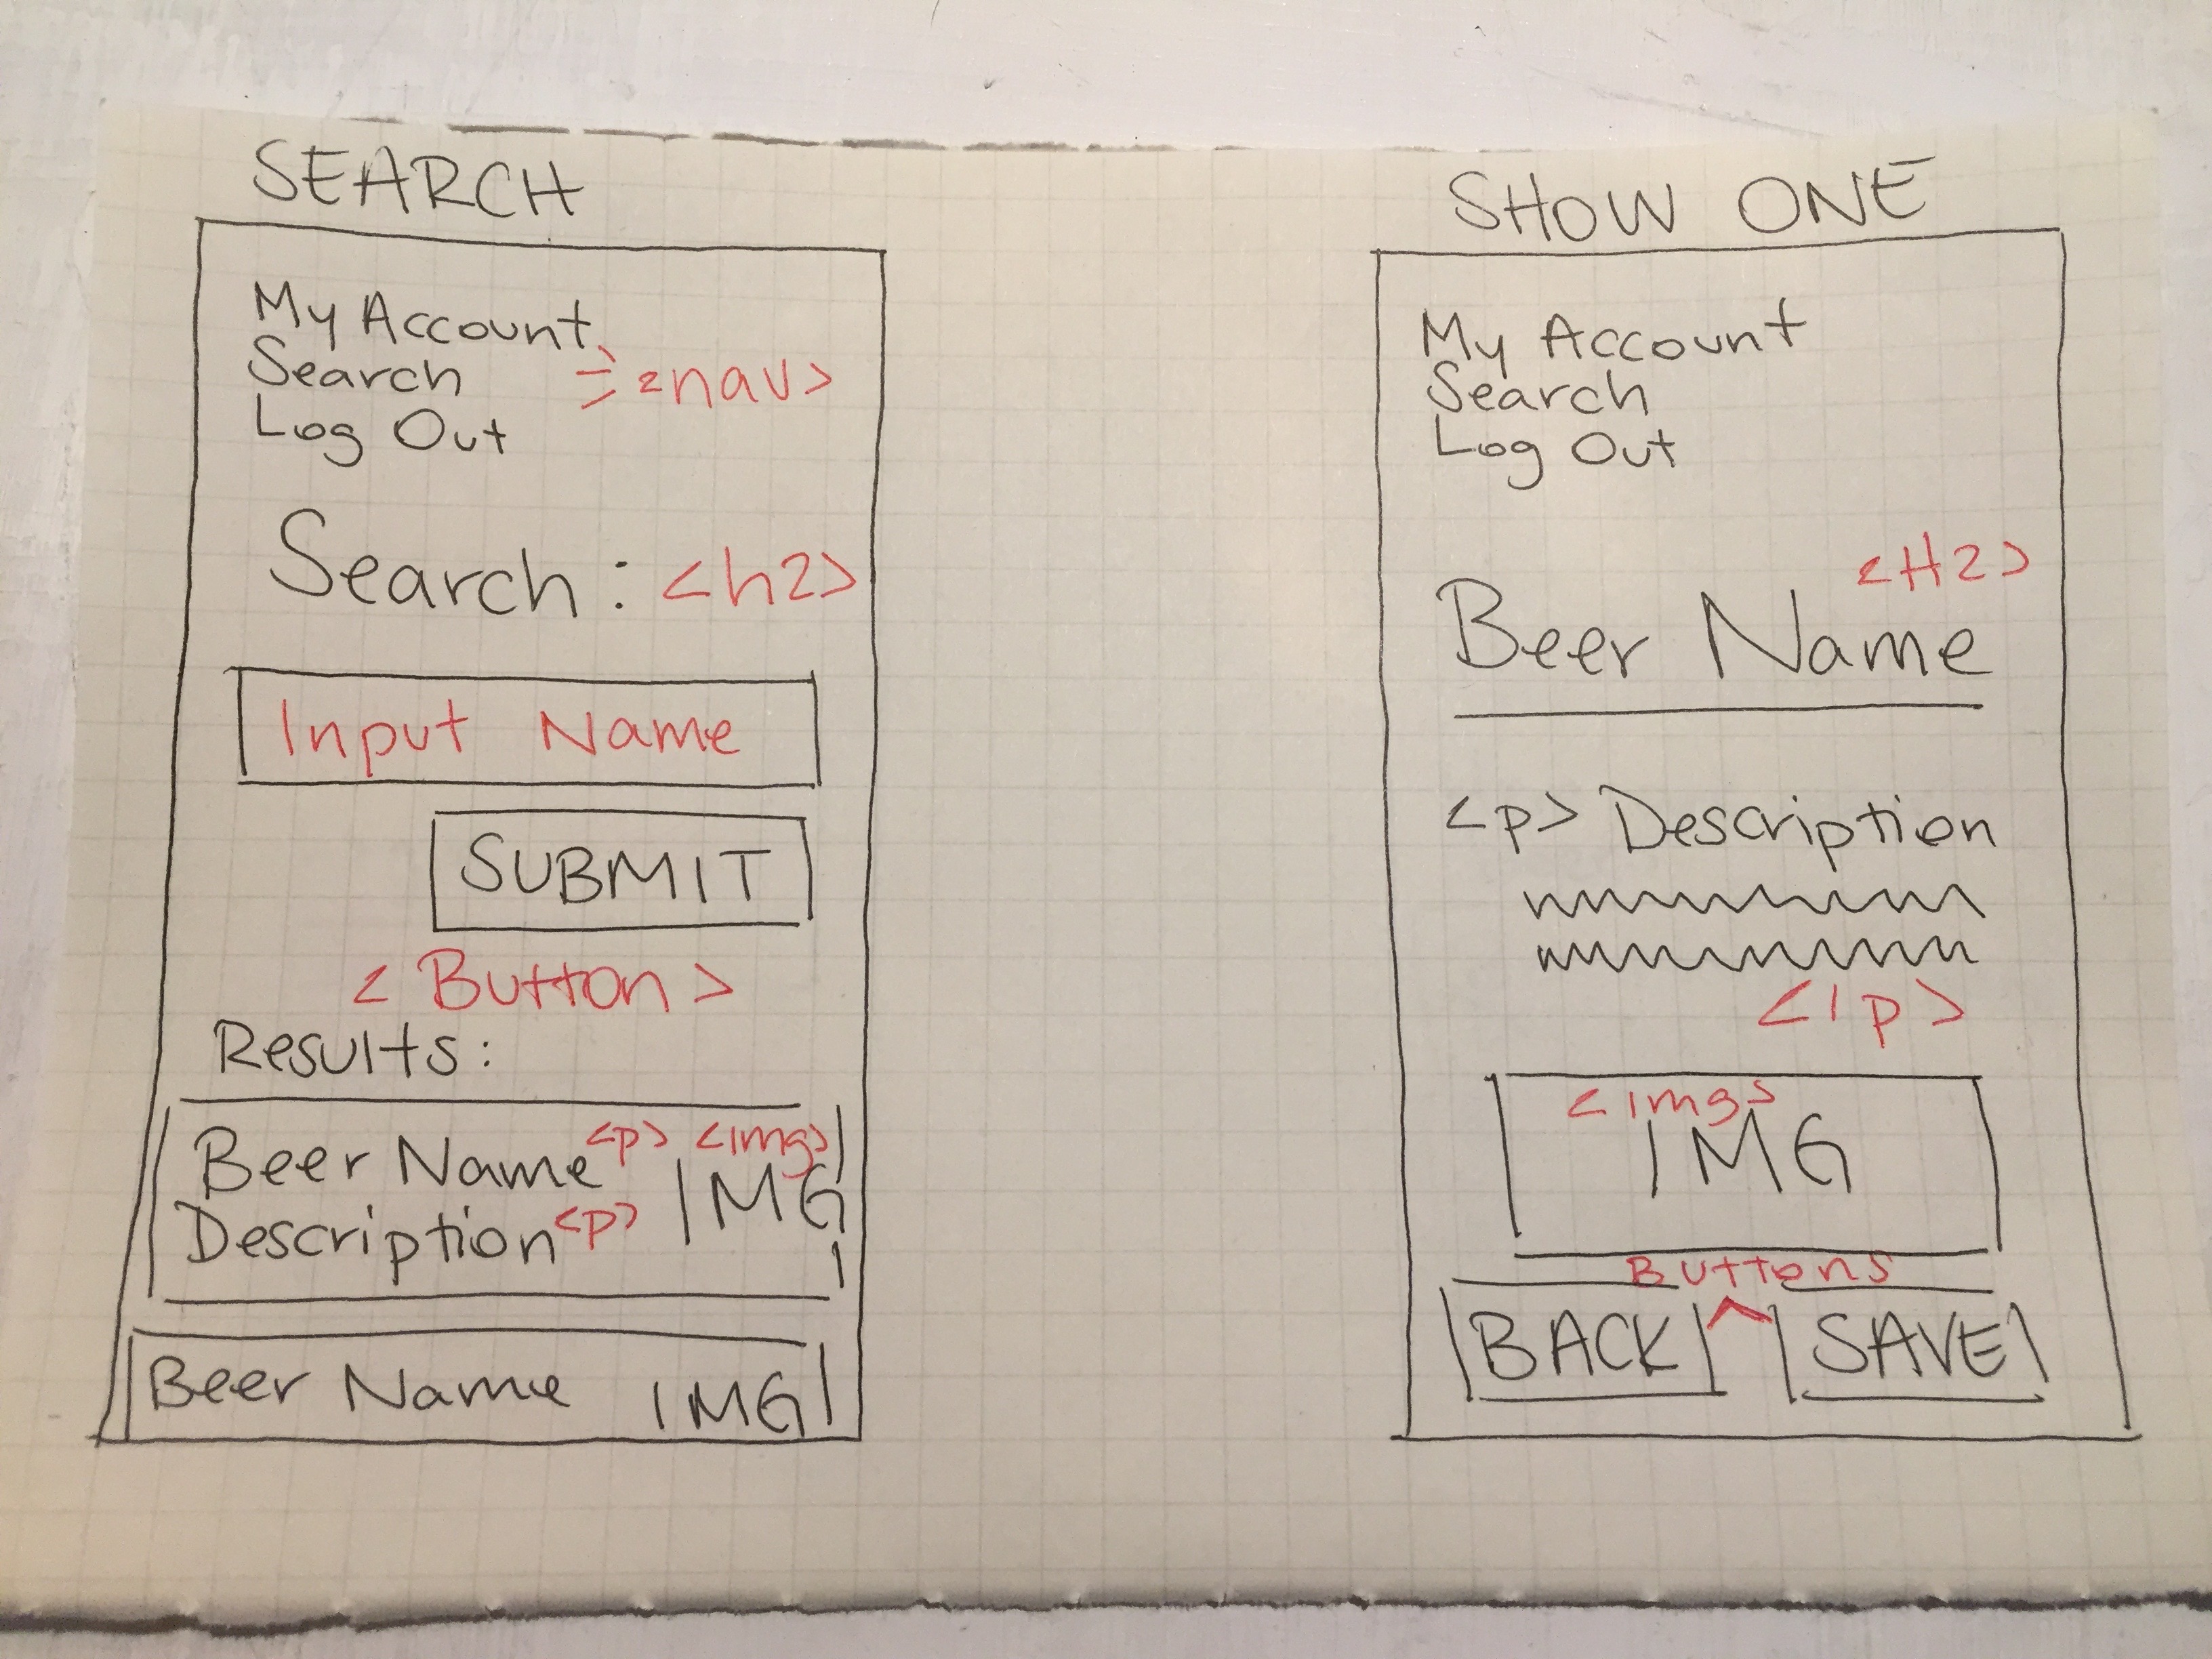 SEARCH
My Account
Search <nav>
Log Out
Search: <h2>
Input Name
SUBMIT
<Button>
Results:
Beer Name <p> <img>
IMG
Description <p>
Beer Name IMG
SHOW ONE
My Account
Search
Log Out
<H2>
Beer Name
<p> Description
</p>
<img>
IMG
Buttons
BACK SAVE